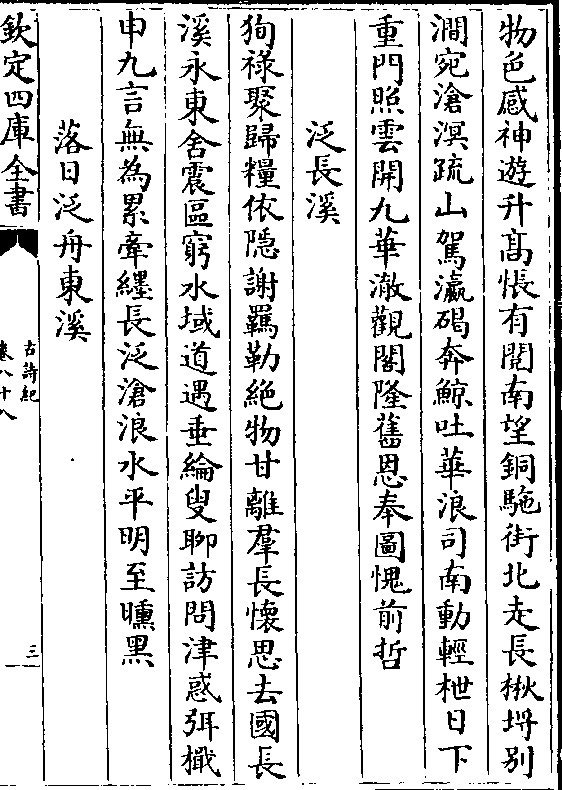 物色感神遊升髙悵有閱南望銅駞街北走長楸埒别
澗宛滄溟疏山駕瀛碣奔鯨吐華浪司南動輕枻日下
重門照雲開九華澈觀閣隆舊恩奉圖愧前哲
泛長溪
狥禄聚歸糧依隐謝羈勒絶物甘離羣長懷思去國長
溪永東舍震區窮水域道遇垂綸叟聊訪問津惑弭檝
申九言無為累牽纆長泛滄浪水平明至曛黑
落日泛舟東溪
欽定四庫全書
古詩紀
卷八十八
三